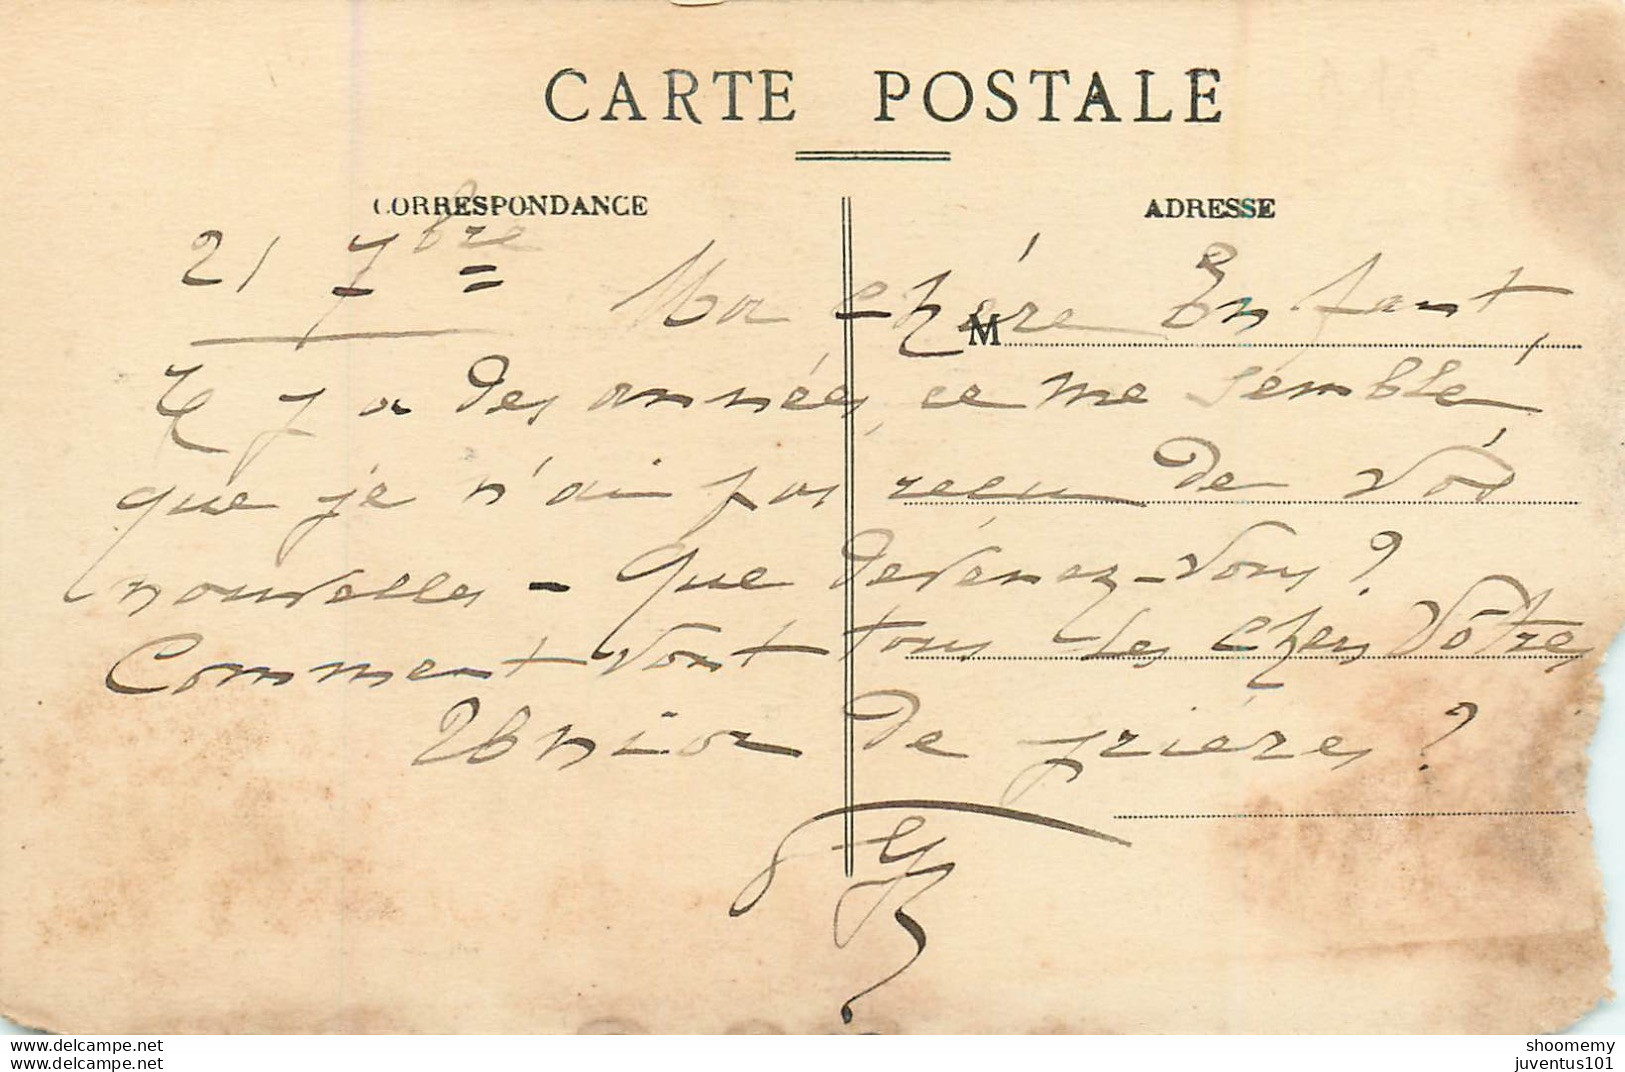 CARTE POSTALE
CORRESPONDANCE
ADRESSE
21 7bre
Ma chère Enfant,
M
Il y a des années, ce me semble,
que je n'ai pas reçu de vos
nouvelles - Que devenez-vous ?
Comment vont tous les chers Vôtres
Union de prières ?
www.delcampe.net
www.delcampe.net
shoomemy
juventus101